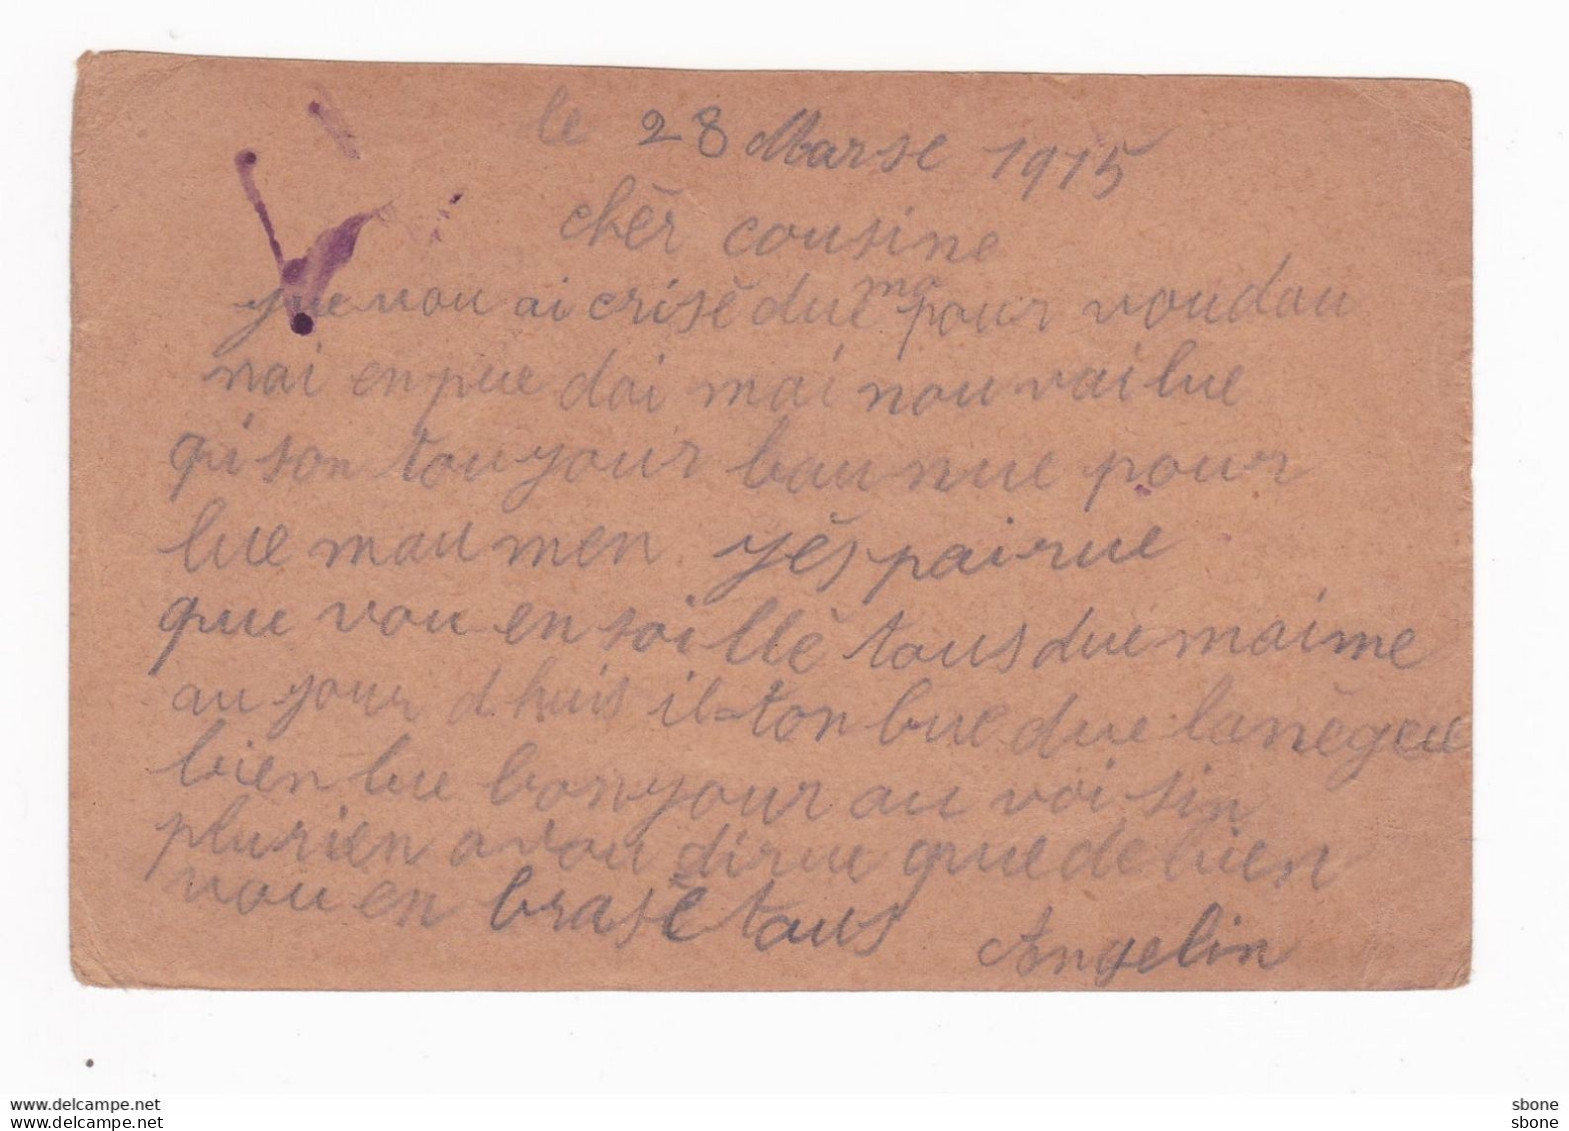 le 28 Marse 1915
chèr cousine
yue vou ai crisè due mo pour voudou
nai en pue dai mai nou vai lue
qi son tou your bau nue pour
lue mau men yès pai rue
que vou en soi llè tous due maime
au your d huis il ton bue due la nègeue
bien lue bonyour au voi sin
plurien a vou dirue que de bien
vou en brasè tous Angelin
www.delcampe.net
www.delcampe.net
sbone
sbone